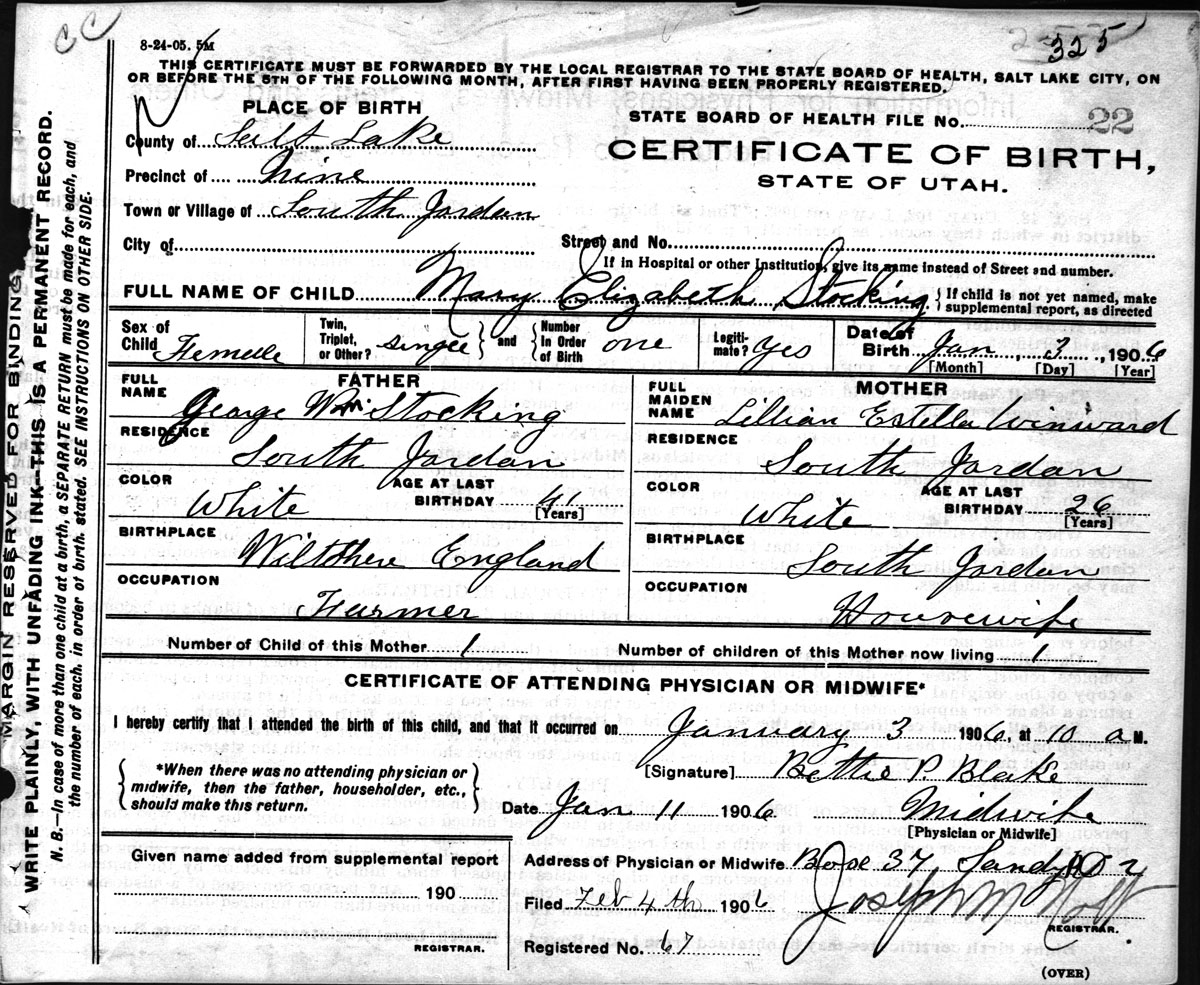 CC
8-24-05. 5M
325
THIS CERTIFICATE MUST BE FORWARDED BY THE LOCAL REGISTRAR TO THE STATE BOARD OF HEALTH, SALT LAKE CITY, ON
OR BEFORE THE 5TH OF THE FOLLOWING MONTH, AFTER FIRST HAVING BEEN PROPERLY REGISTERED.
PLACE OF BIRTH
STATE BOARD OF HEALTH FILE No. 22
County of Salt Lake
CERTIFICATE OF BIRTH,
STATE OF UTAH.
Precinct of Nine
Town or Village of South Jordan
City of
Street and No.
If in Hospital or other Institution, give its name instead of Street and number.
FULL NAME OF CHILD Mary Elizabeth Stocking { If child is not yet named, make
supplemental report, as directed
Sex of Child Femelle
Twin, Triplet, or Other? single } and { Number In Order of Birth one
Legitimate? yes
Date of Birth Jan 3, 1906
[Month] [Day] [Year]
FATHER
FULL NAME George Wm Stocking
RESIDENCE South Jordan
COLOR White
AGE AT LAST BIRTHDAY 41
[Years]
BIRTHPLACE Wiltshere England
OCCUPATION Farmer
MOTHER
FULL MAIDEN NAME Lillian Estella Winward
RESIDENCE South Jordan
COLOR White
AGE AT LAST BIRTHDAY 26
[Years]
BIRTHPLACE South Jordan
OCCUPATION Housewife
Number of Child of this Mother 1
Number of children of this Mother now living 1
CERTIFICATE OF ATTENDING PHYSICIAN OR MIDWIFE*
I hereby certify that I attended the birth of this child, and that it occurred on January 3 1906, at 10 a M.
{ *When there was no attending physician or
midwife, then the father, householder, etc.,
should make this return. }
[Signature] Bettie P. Blake
Date Jan 11 1906
Midwife
[Physician or Midwife]
Given name added from supplemental report
190
REGISTRAR.
Address of Physician or Midwife Box 37 Sandy
Filed Feb 4th 1906
Joseph M Holt
REGISTRAR.
Registered No. 67
(OVER)
MARGIN RESERVED FOR BINDING
WRITE PLAINLY, WITH UNFADING INK—THIS IS A PERMANENT RECORD.
N. B.—In case of more than one child at a birth, a SEPARATE RETURN must be made for each, and
the number of each, in order of birth, stated. SEE INSTRUCTIONS ON OTHER SIDE.